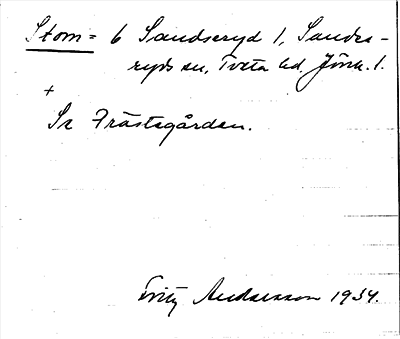 Stom= 6 Sandseryd 1, Sandse-
ryds sn, Tveta hd. Jönk. l.
+
Se Prästgården.
Fritz Andersson 1934.